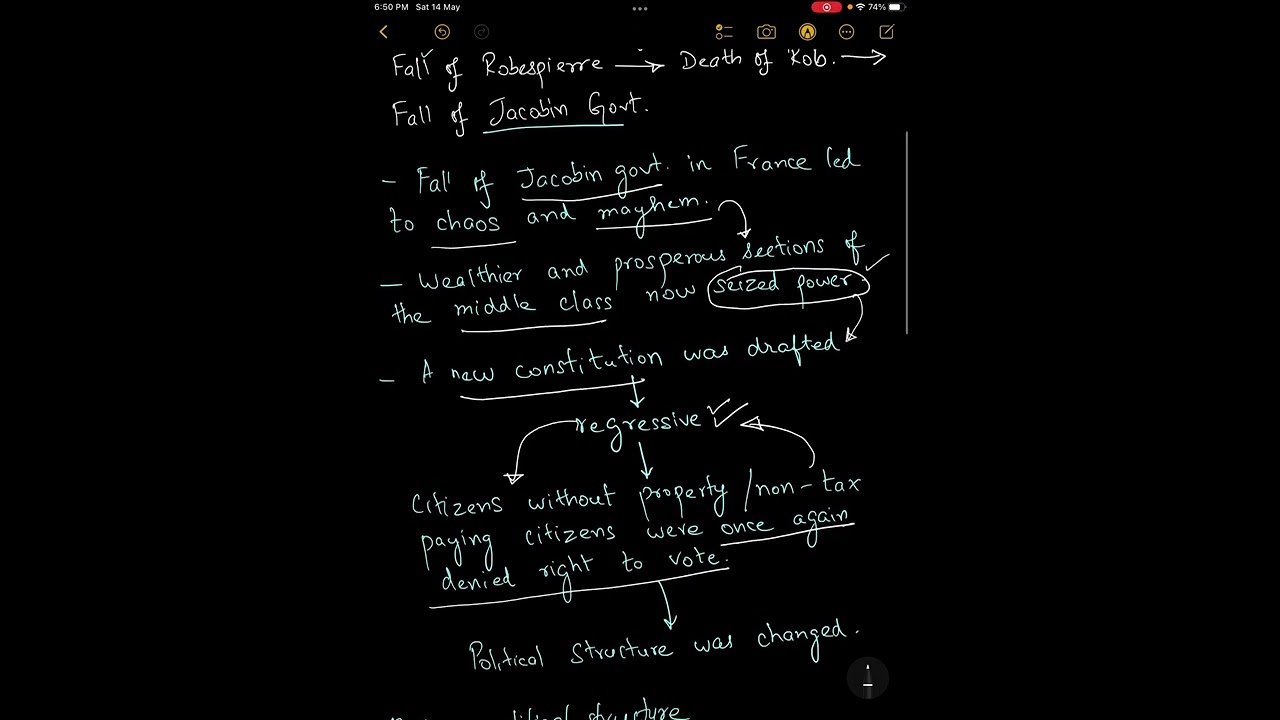 6:50 PM Sat 14 May
74%
Fall of Robespierre → Death of Rob. →
Fall of Jacobin Govt.
- Fall of Jacobin govt. in France led
to chaos and mayhem.
- Wealthier and prosperous sections of
the middle class now seized power.
- A new constitution was drafted
regressive
Citizens without property/non-tax
paying citizens were once again
denied right to vote.
Political structure was changed.
structure